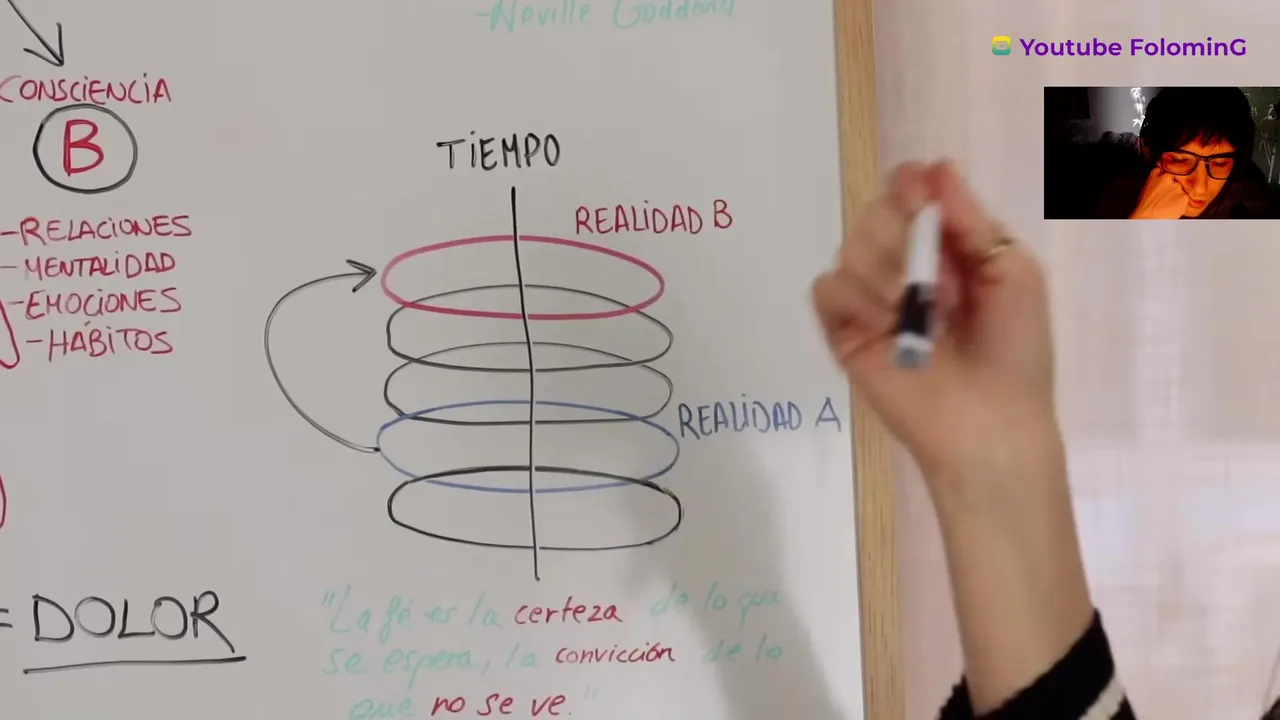 -Neville Goddard
Youtube FolominG
CONSCIENCIA
B
-RELACIONES
-MENTALIDAD
-EMOCIONES
-HÁBITOS
TIEMPO
REALIDAD B
REALIDAD A
= DOLOR
"La fé es la certeza de lo que
se espera, la convicción de lo
que no se ve."